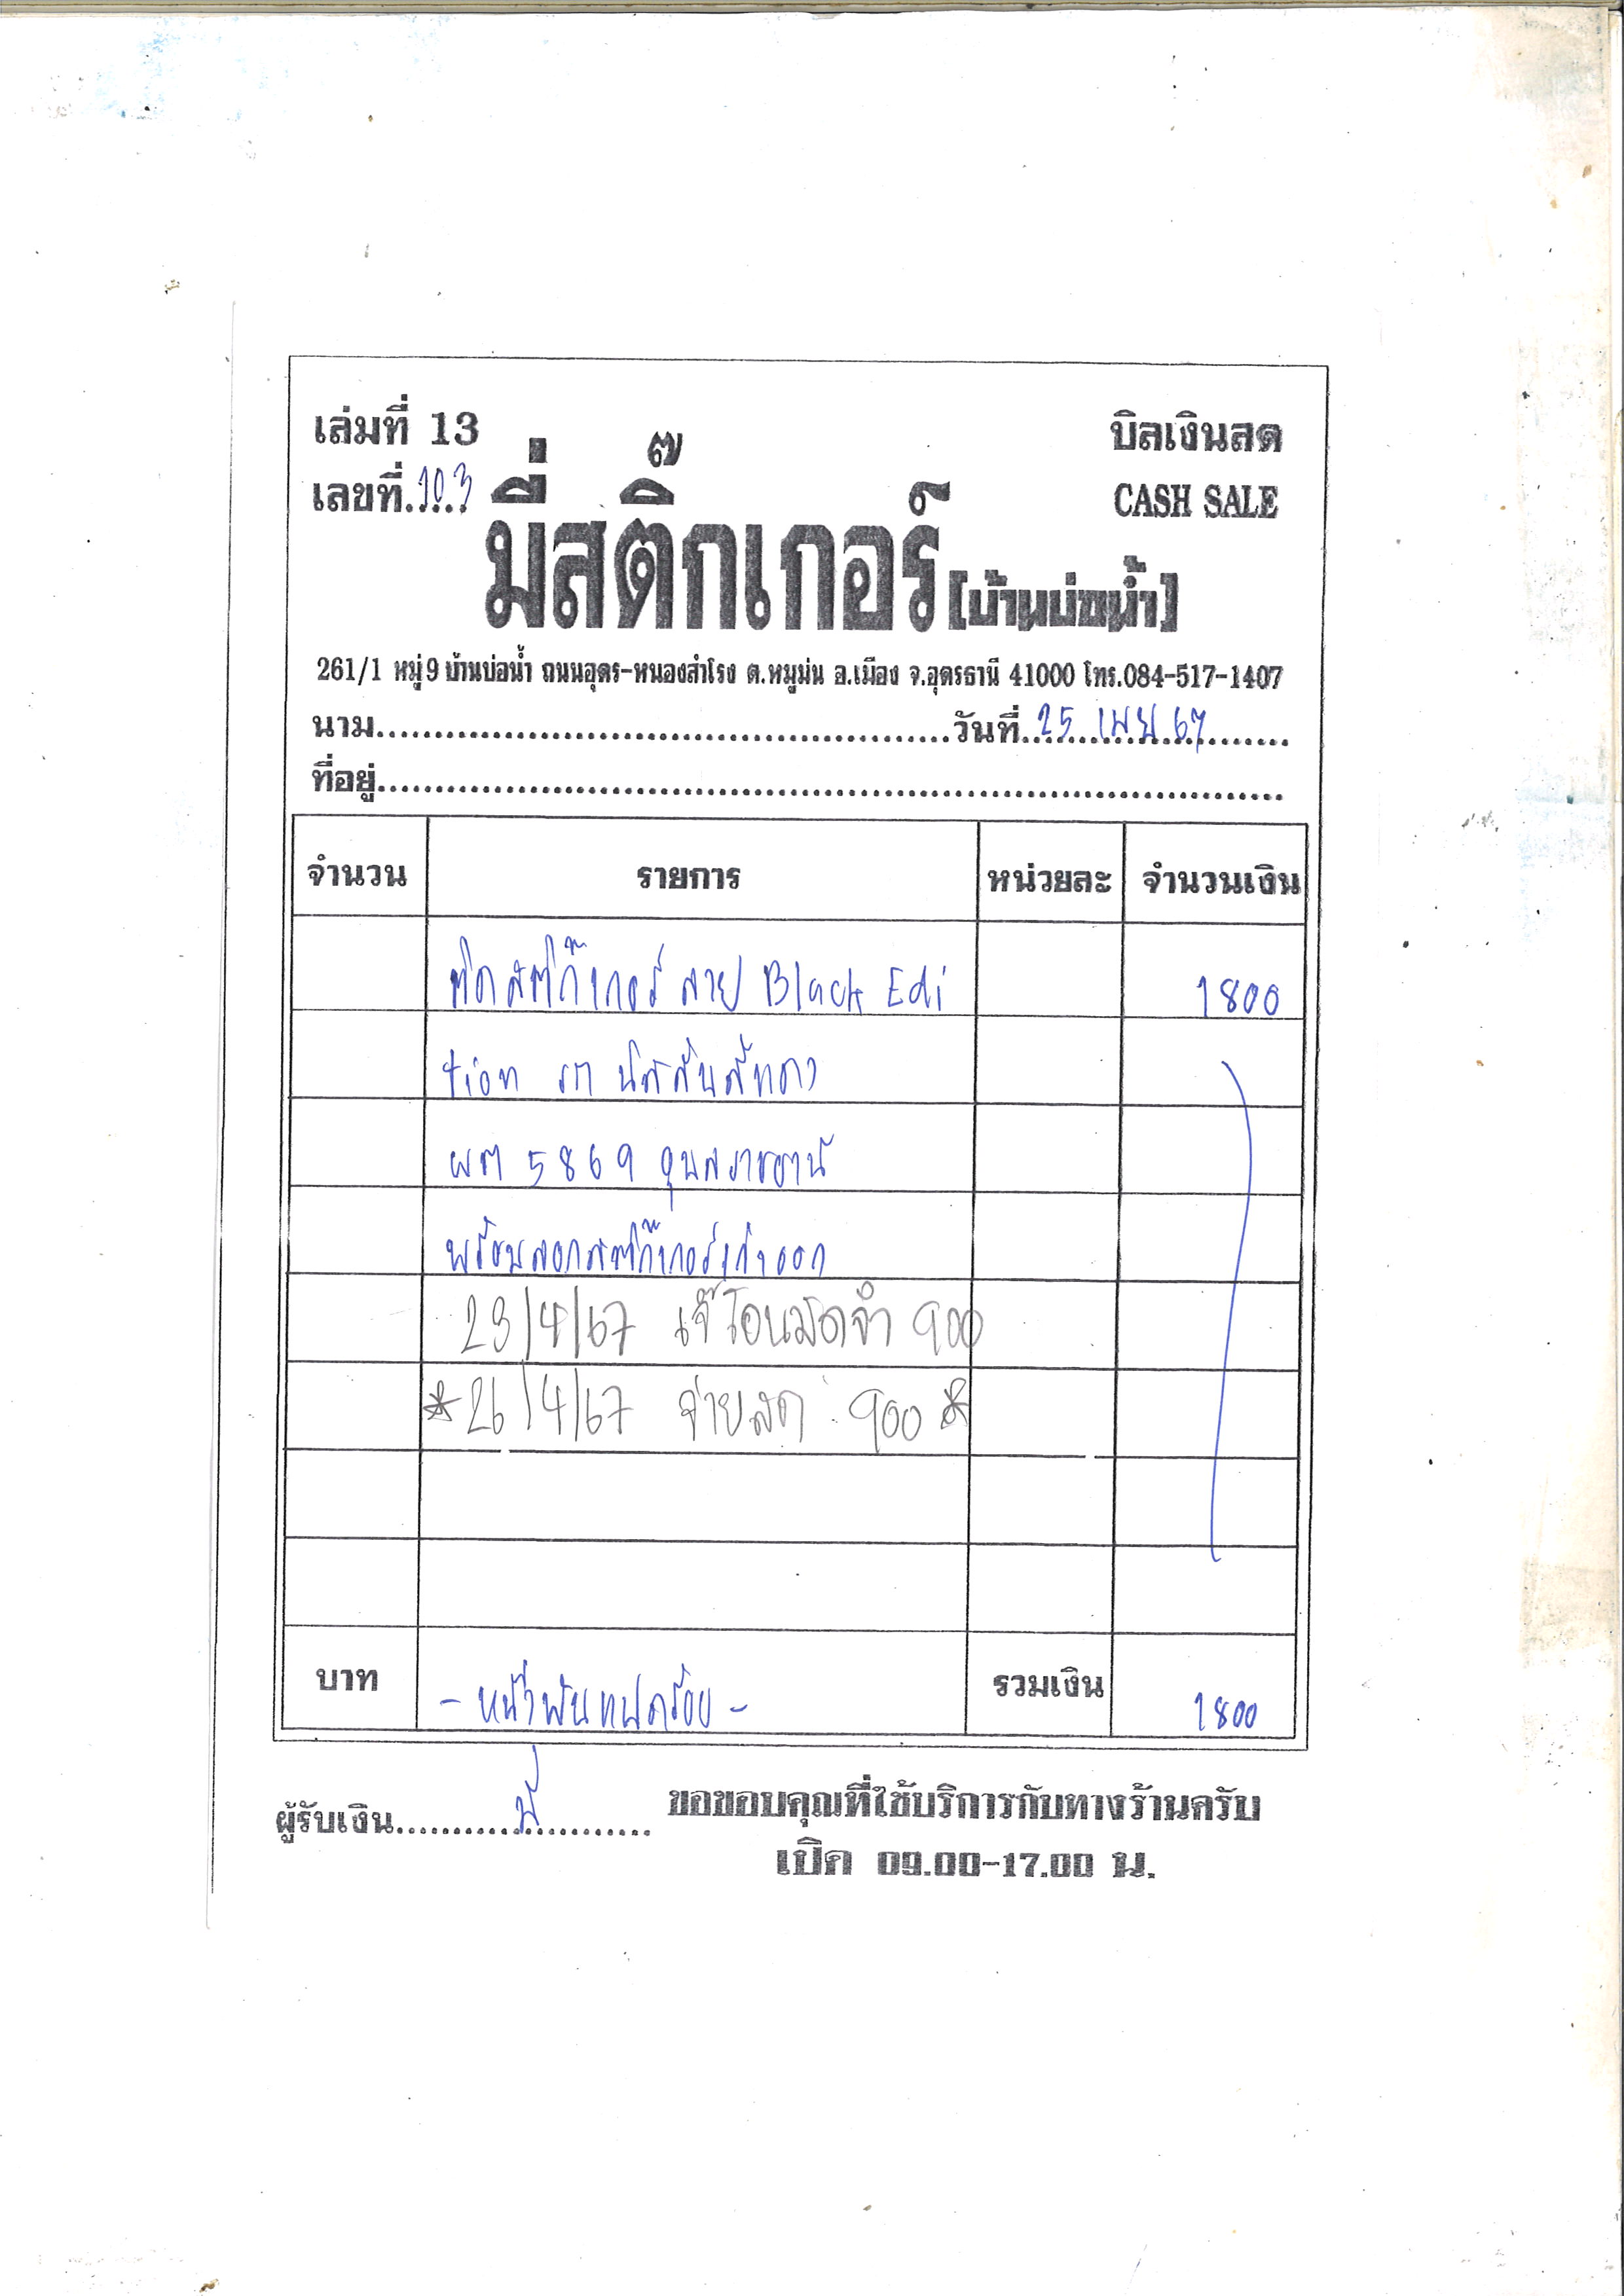 เล่มที่ 13
บิลเงินสด
เลขที่.103
CASH SALE
มี่สติ๊กเกอร์ [บ้านบ่อน้ำ]
261/1 หมู่ 9 บ้านบ่อน้ำ ถนนอุดร-หนองสำโรง ต.หมูม่น อ.เมือง จ.อุดรธานี 41000 โทร.084-517-1407
นาม.................................................วันที่ 25 เมย 67
ที่อยู่................................................................................
จำนวน รายการ หน่วยละ จำนวนเงิน
ติดสติ๊กเกอร์ ลาย Black Edi 1800
tion รถ นิสสันสีแดง
ผต 5869 อุบลราชธานี
พร้อมลอกสติ๊กเกอร์เก่าออก
23/4/67 เจ๊โอนมัดจำ 900
*26/4/67 จ่ายสด 900*
บาท - หนึ่งพันแปดร้อย - รวมเงิน 1800
ผู้รับเงิน......................
ขอขอบคุณที่ใช้บริการกับทางร้านครับ
เปิด 09.00-17.00 น.